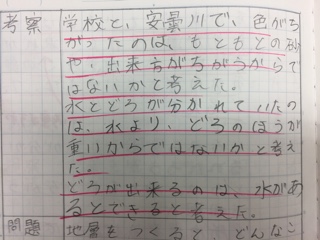 考察
学校と、安曇川で、色がち
がったのは、もともとの砂
や、出来方がちがうからで
はないかと考えた。
水とどろが分かれていたの
は、水より、どろのほうが
重いからではないかと考え
た。
どろが出来るのは、水があ
るとできると考えた。
問題
地層をつくると、どんなこ